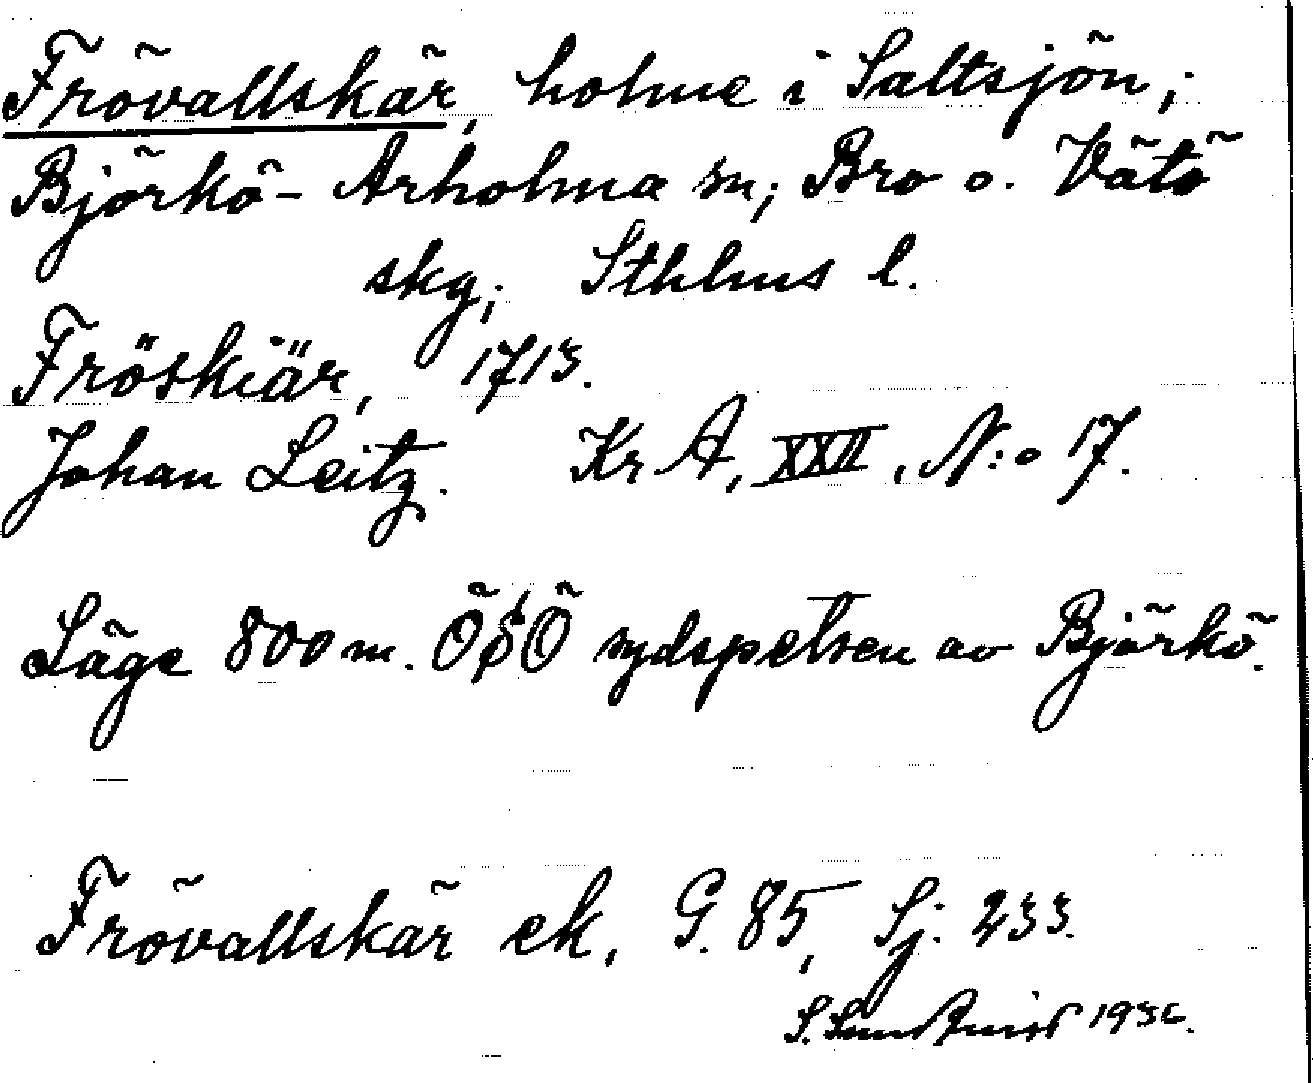 Frövallskär, holme i Saltsjön;
Björkö-Arholma sn; Bro o. Vätö
skg; Sthlms l.
Fröskiär, 1713.
Johan Leitz. Kr A, XXII, N:o 17.
Läge 800 m. ÖSÖ sydspetsen av Björkö.
Frövallskär ek, G. 85, Sj: 233.
S. Sundqvist 1936.